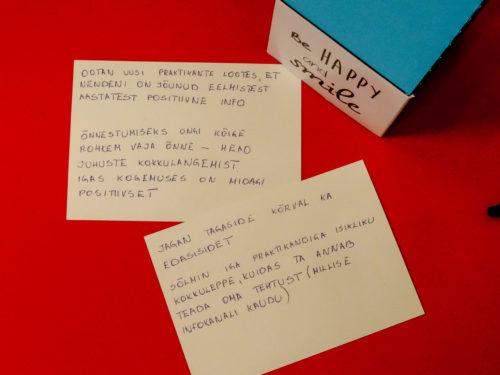 OOTAN UUSI PRAKTIKANTE LOOTES, ET
NENDENI ON JÕUNUD EELMISTEST
AASTATEST POSITIIVNE INFO
ÕNNESTUMISEKS ONGI KÕIGE
ROHKEM VAJA ÕNNE – HEAD
JUHUSTE KOKKULANGEMIST
IGAS KOGEMUSES ON MIDAGI
POSITIIVSET
Be HAPPY
and
smile
JAGAN TAGASIDE KÕRVAL KA
EDASISIDET
SÕLMIN IGA PRAKTIKANDIGA ISIKLIKU
KOKKULEPPE, KUIDAS TA ANNAB
TEADA OMA TEHTUST (MILLISE
INFOKANALI KAUDU)